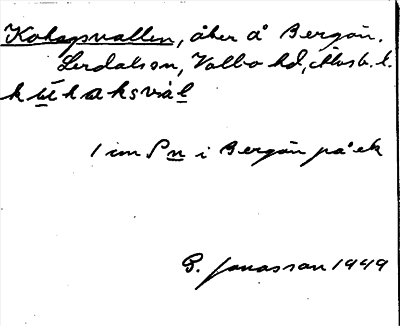 Kohagsvallen, åker å Bergän.
Lerdalson, Valbo hd, Älvsb. l.
kúhaksvàl
1 cm S n i Bergän på ek
G. Jonasson 1949